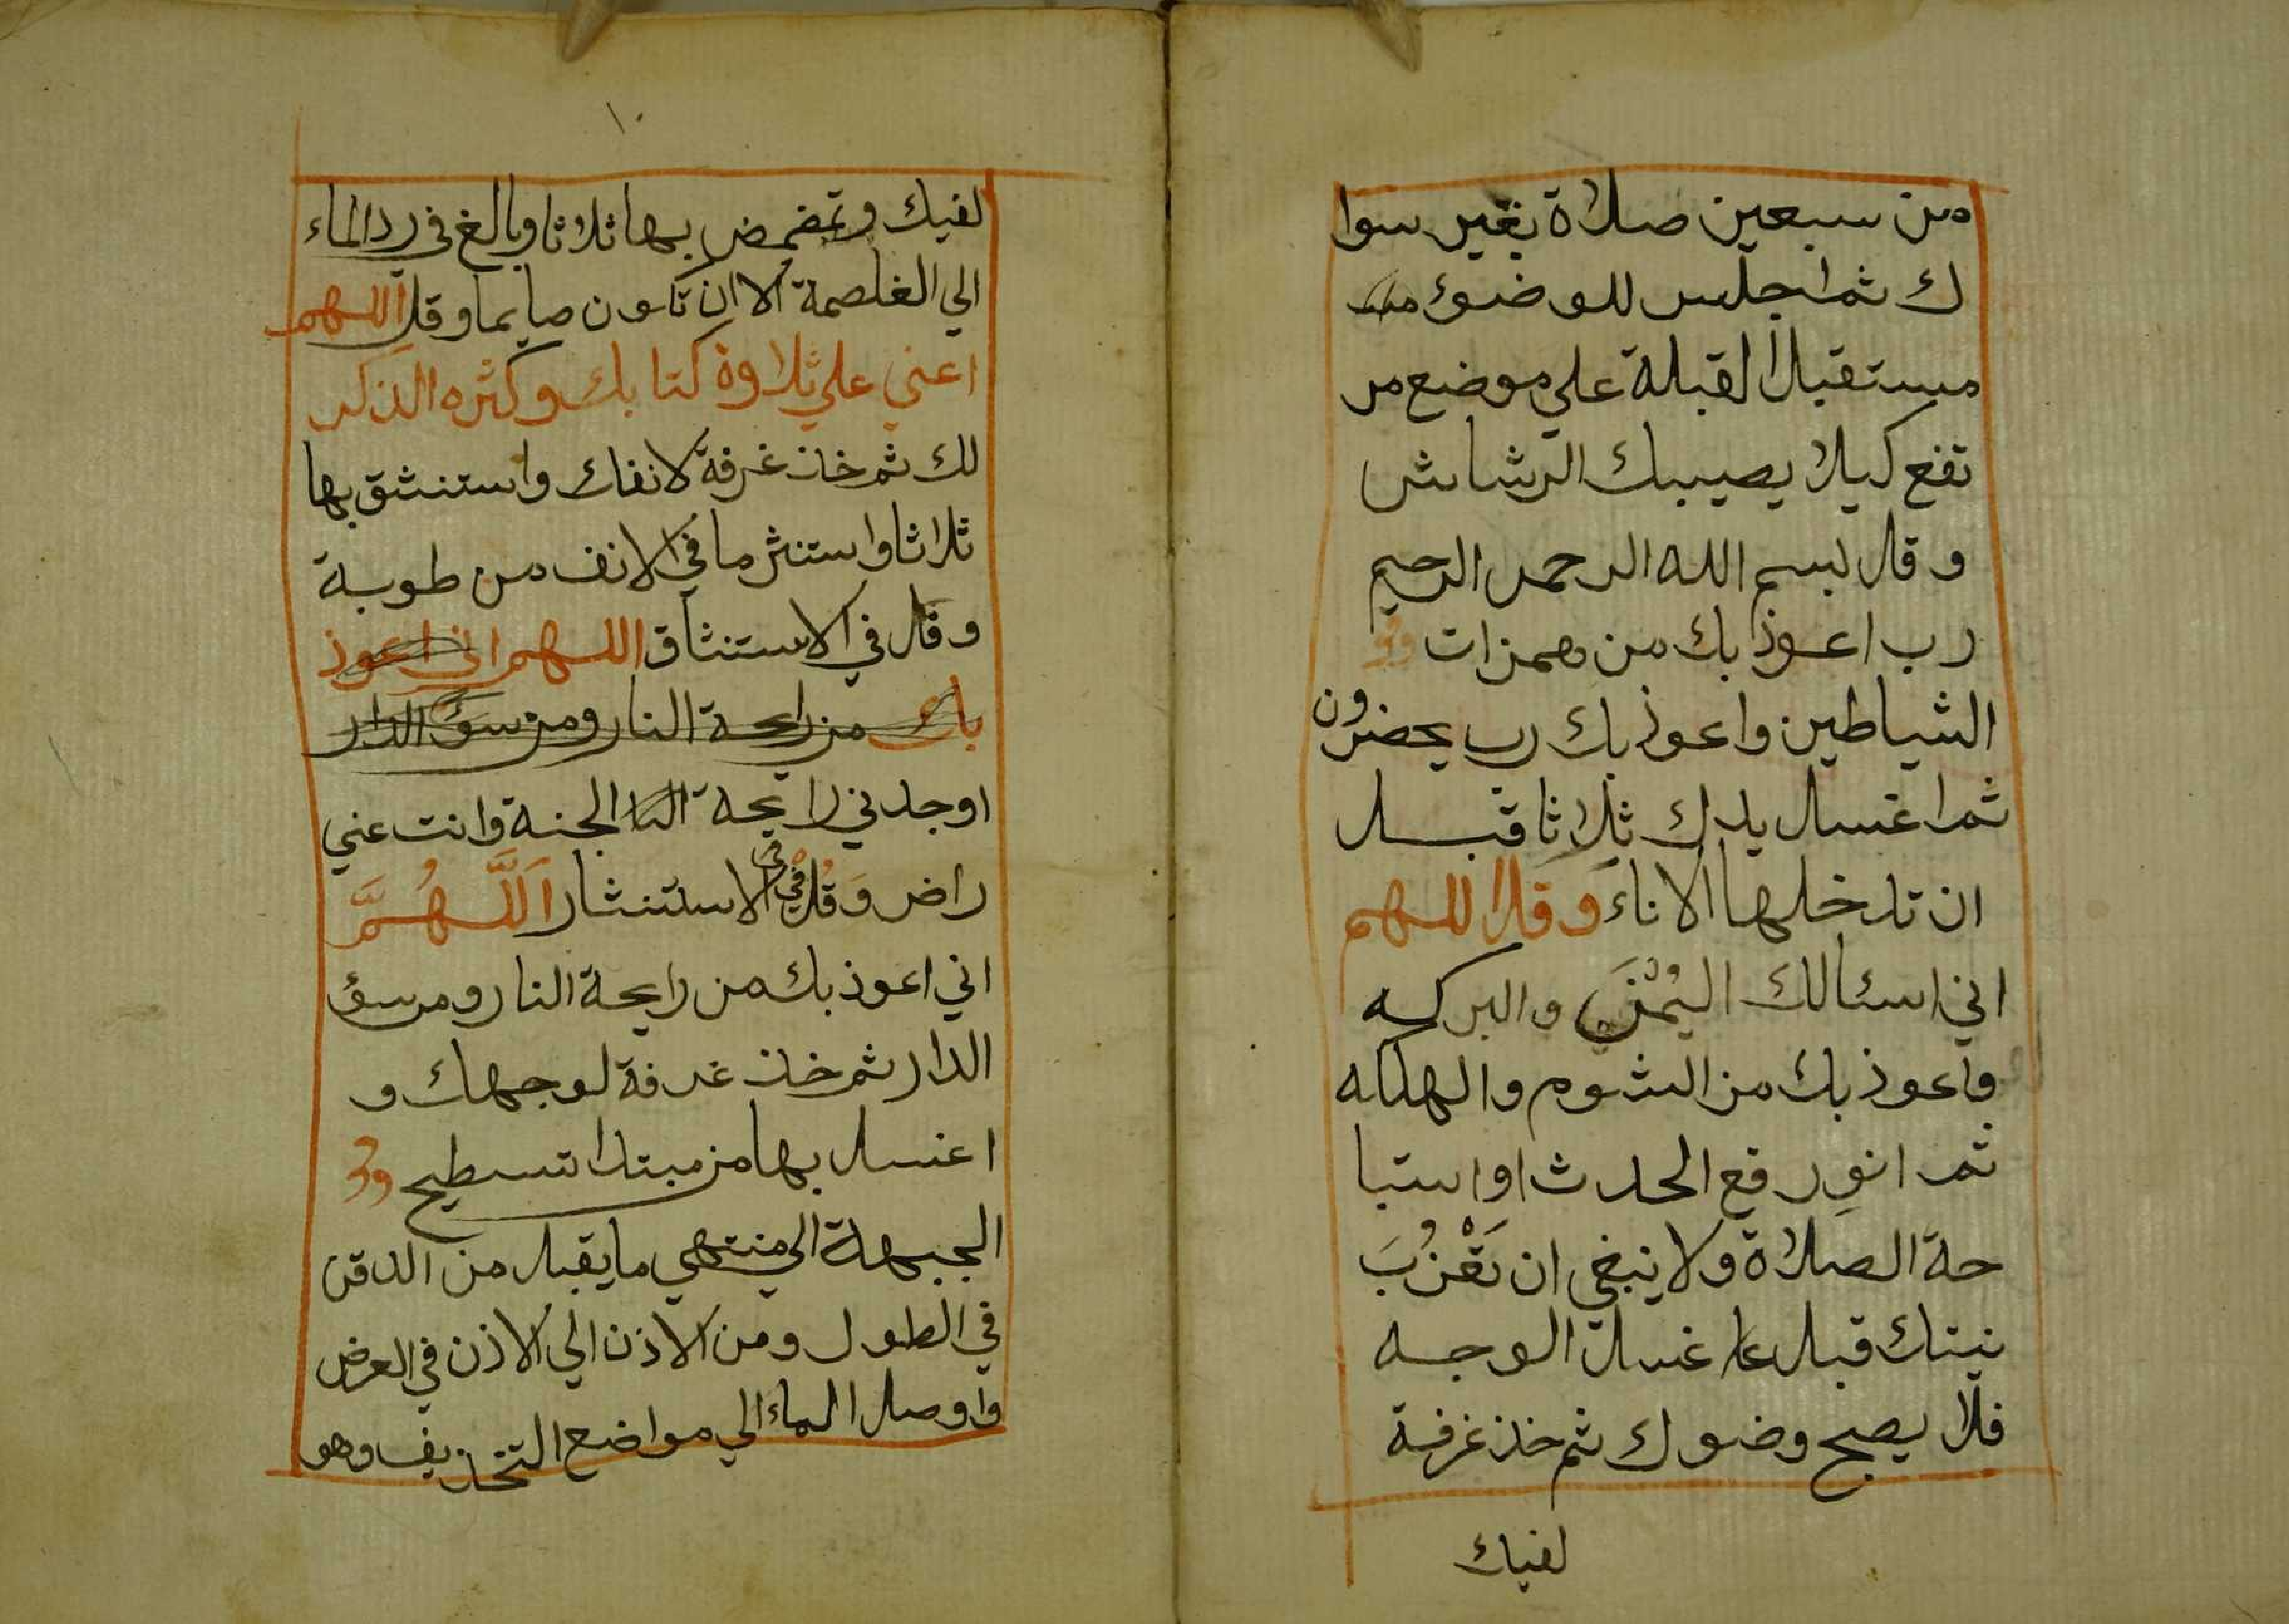 من سبعين صلاة بغير سوا
ك ثم اجلس للوضوء
مستقبل القبلة علي موضع مر
تفع كيلا يصيبك الرشاش
وقل بسم الله الرحمن الرحيم
رب اعوذ بك من همزات
الشياطين واعوذ بك رب يحضرون
ثم اغسل يدك ثلاثا قبل
ان تدخلها الاناء وقل اللهم
اني اسئالك اليُمْنَ والبركه
واعوذ بك من الشوم والهلكه
ثم انوِ رفع الحدث او استبا
حة الصلاة ولا ينبغي ان تَعْزُبَ
نيتك قبل غسل الوجه
فلا يصح وضوك ثم خذ غرفة
لفيك
١٠
لفيك وتمضمض بها ثلاثا وبالغ في رد الماء
الي الغلصمة الا ان تكون صايما وقل اللهم
اعني علي ثلاوة كتابك وكثره الذكر
لك ثم خذ غرفة لانفك واستنشق بها
ثلاثا واستنثر ما في الانف من طوبة
وقل في الاستنثاق اللهم اني اعوذ
بك من رايحة النار ومن سؤ الدار
اوجدني رايحة النا الجنة وانت عني
راض وَقُلْ في الاستنثار اَللَّهُمَّ
اني اعوذ بك من رايحة النار ومن سؤ
الدار ثم خذ غرفة لوجهك و
اغسل بها من مبتدا تسطيح
الجبهة الي منتهي ما يقبل من الدقن
في الطول ومن الاذن الي الاذن في العرض
واوصل الماء الي مواضع التخذيف وهو